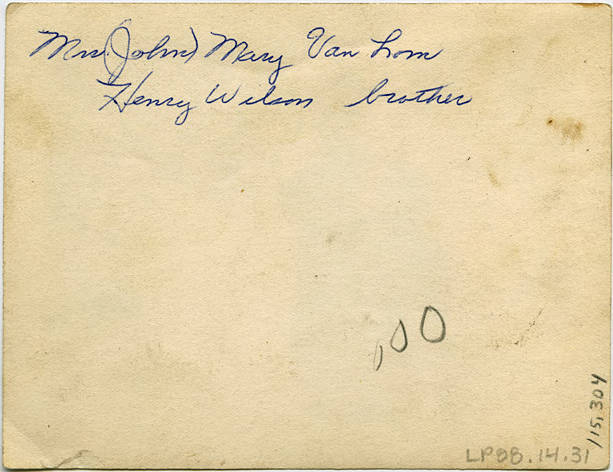 Mrs. (John) Mary Van Lom
Henry Wilson brother
,00
115,304
LP88.14.31